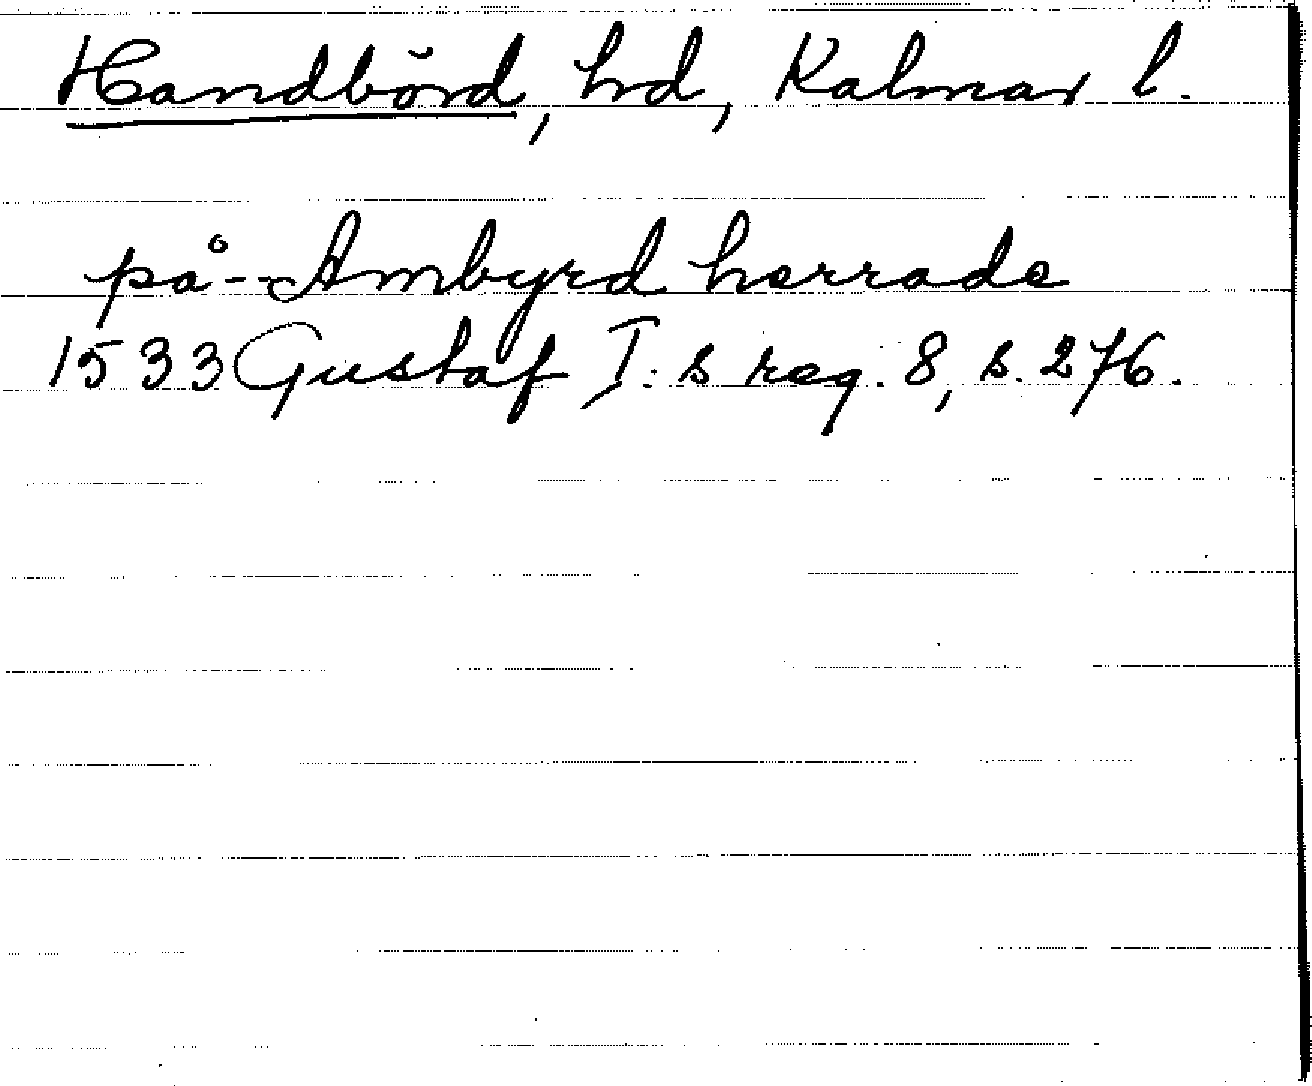 Handbörd, hd, Kalmar l.
på -- Ambyrd herrade
1533 Gustaf I:s reg. 8, s. 276.